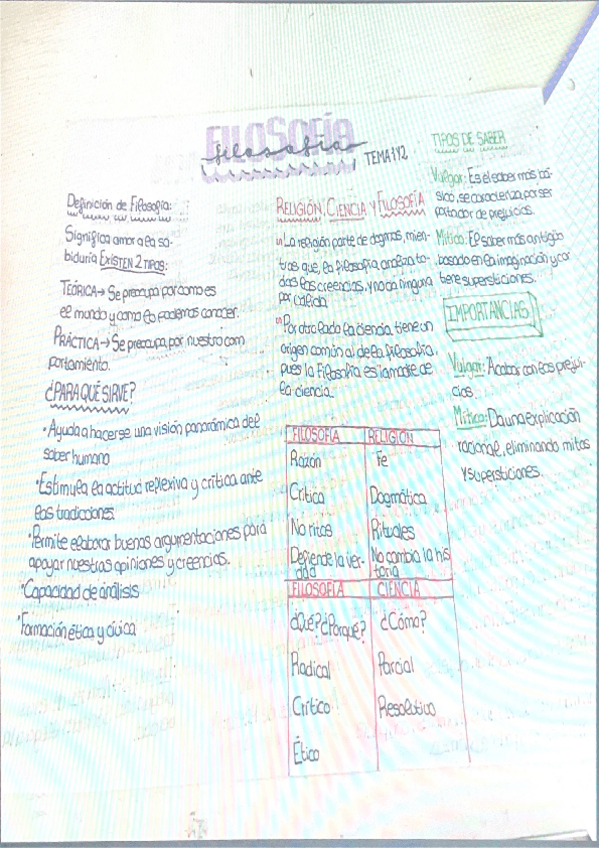 FILOSOFÍA
filosofía
TEMA 1 Y 2
Definición de Filosofía:
Significa amor a la sa-
biduría EXISTEN 2 TIPOS:
TEÓRICA → Se preocupa por como es
el mundo y como lo podemos conocer.
PRÁCTICA → Se preocupa por nuestro com
portamiento.
¿PARA QUÉ SIRVE?
• Ayuda a hacerse una visión panorámica del
saber humano
• Estimula la actitud reflexiva y crítica ante
las tradiciones.
• Permite elaborar buenas argumentaciones para
apoyar nuestras opiniones y creencias.
• Capacidad de análisis
• Formación ética y cívica
RELIGIÓN, CIENCIA Y FILOSOFÍA
La religión parte de dogmas, mien-
tras que, la filosofía analiza to-
das las creencias, y no da ninguna
por válida.
Por otro lado la ciencia, tiene un
origen común al de la filosofía,
pues la Filosofía es la madre de
la ciencia.
FILOSOFÍA RELIGIÓN
Razón Fe
Crítica Dogmática
No ritos Rituales
Defiende la ver- No cambia la his
dad toria
FILOSOFÍA CIENCIA
¿Qué? ¿Porqué? ¿Cómo?
Radical Parcial
Crítico Resolutivo
Ético
TIPOS DE SABER
Vulgar: Es el saber más bá-
sico, se caracteriza por ser
portador de prejuicios.
Mítico: El saber más antiguo
basado en la imaginación y con
tiene supersticiones.
IMPORTANCIAS
Vulgar: Acabar con los prejui-
cios.
Mítico: Da una explicación
racional, eliminando mitos
y supersticiones.